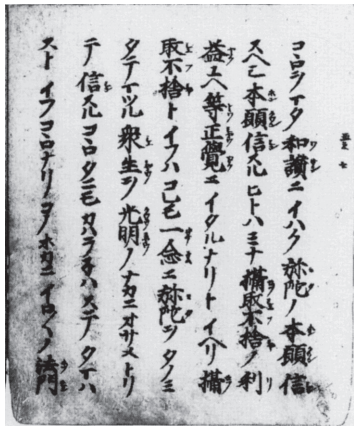 和讃ニイハク弥陀ノ本願信
スヘシ本願信スルヒトハミナ攝取不捨ノ利
益ユヘ等正覺ニイタルナリトイヘリ攝
取不捨トイフハコレモ一念ニ弥陀ヲタノミ
タテマツル衆生ヲ光明ノナカニオサメトリ
テ信スルコヽロタニモカハラネハステタマハ
ストイフコヽロナリコノホカニイロ〳〵ノ法門